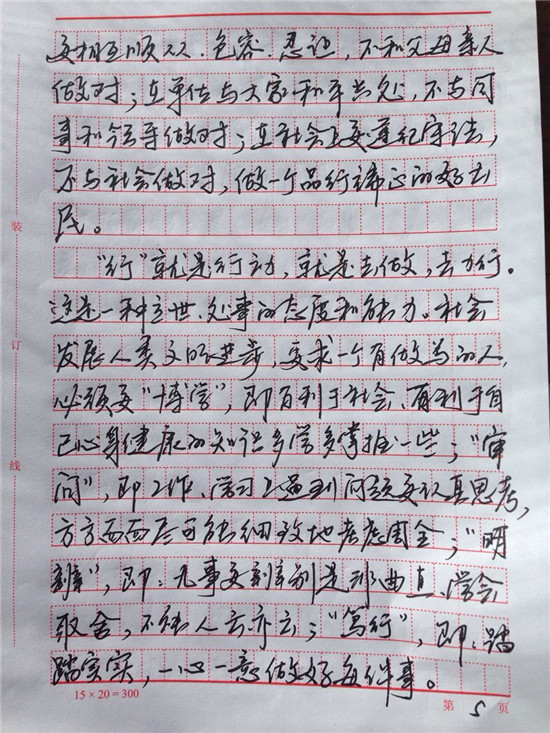 要相互顺从、包容、忍让,不和父母亲人
做对;在单位与大家和平共处,不与同
事和领导做对;在社会上要遵纪守法,
不与社会做对,做一个品行端正的好公
民。
“行”就是行动,就是去做,去力行。
这是一种立世、处事的态度和能力。社会
发展人类文明进步,要求一个有做为的人,
必须要“博学”,即有利于社会、有利于自
己心身健康的知识多学多掌握一些;“审
问”,即工作、学习上遇到问题要认真思考,
方方面面尽可能细致地考虑周全;“明
辨”,即:凡事要辨别是非曲直、学会
取舍,不能人云亦云;“笃行”,即:踏
踏实实,一心一意做好每件事。
装
订
线
15×20=300
第 5 页